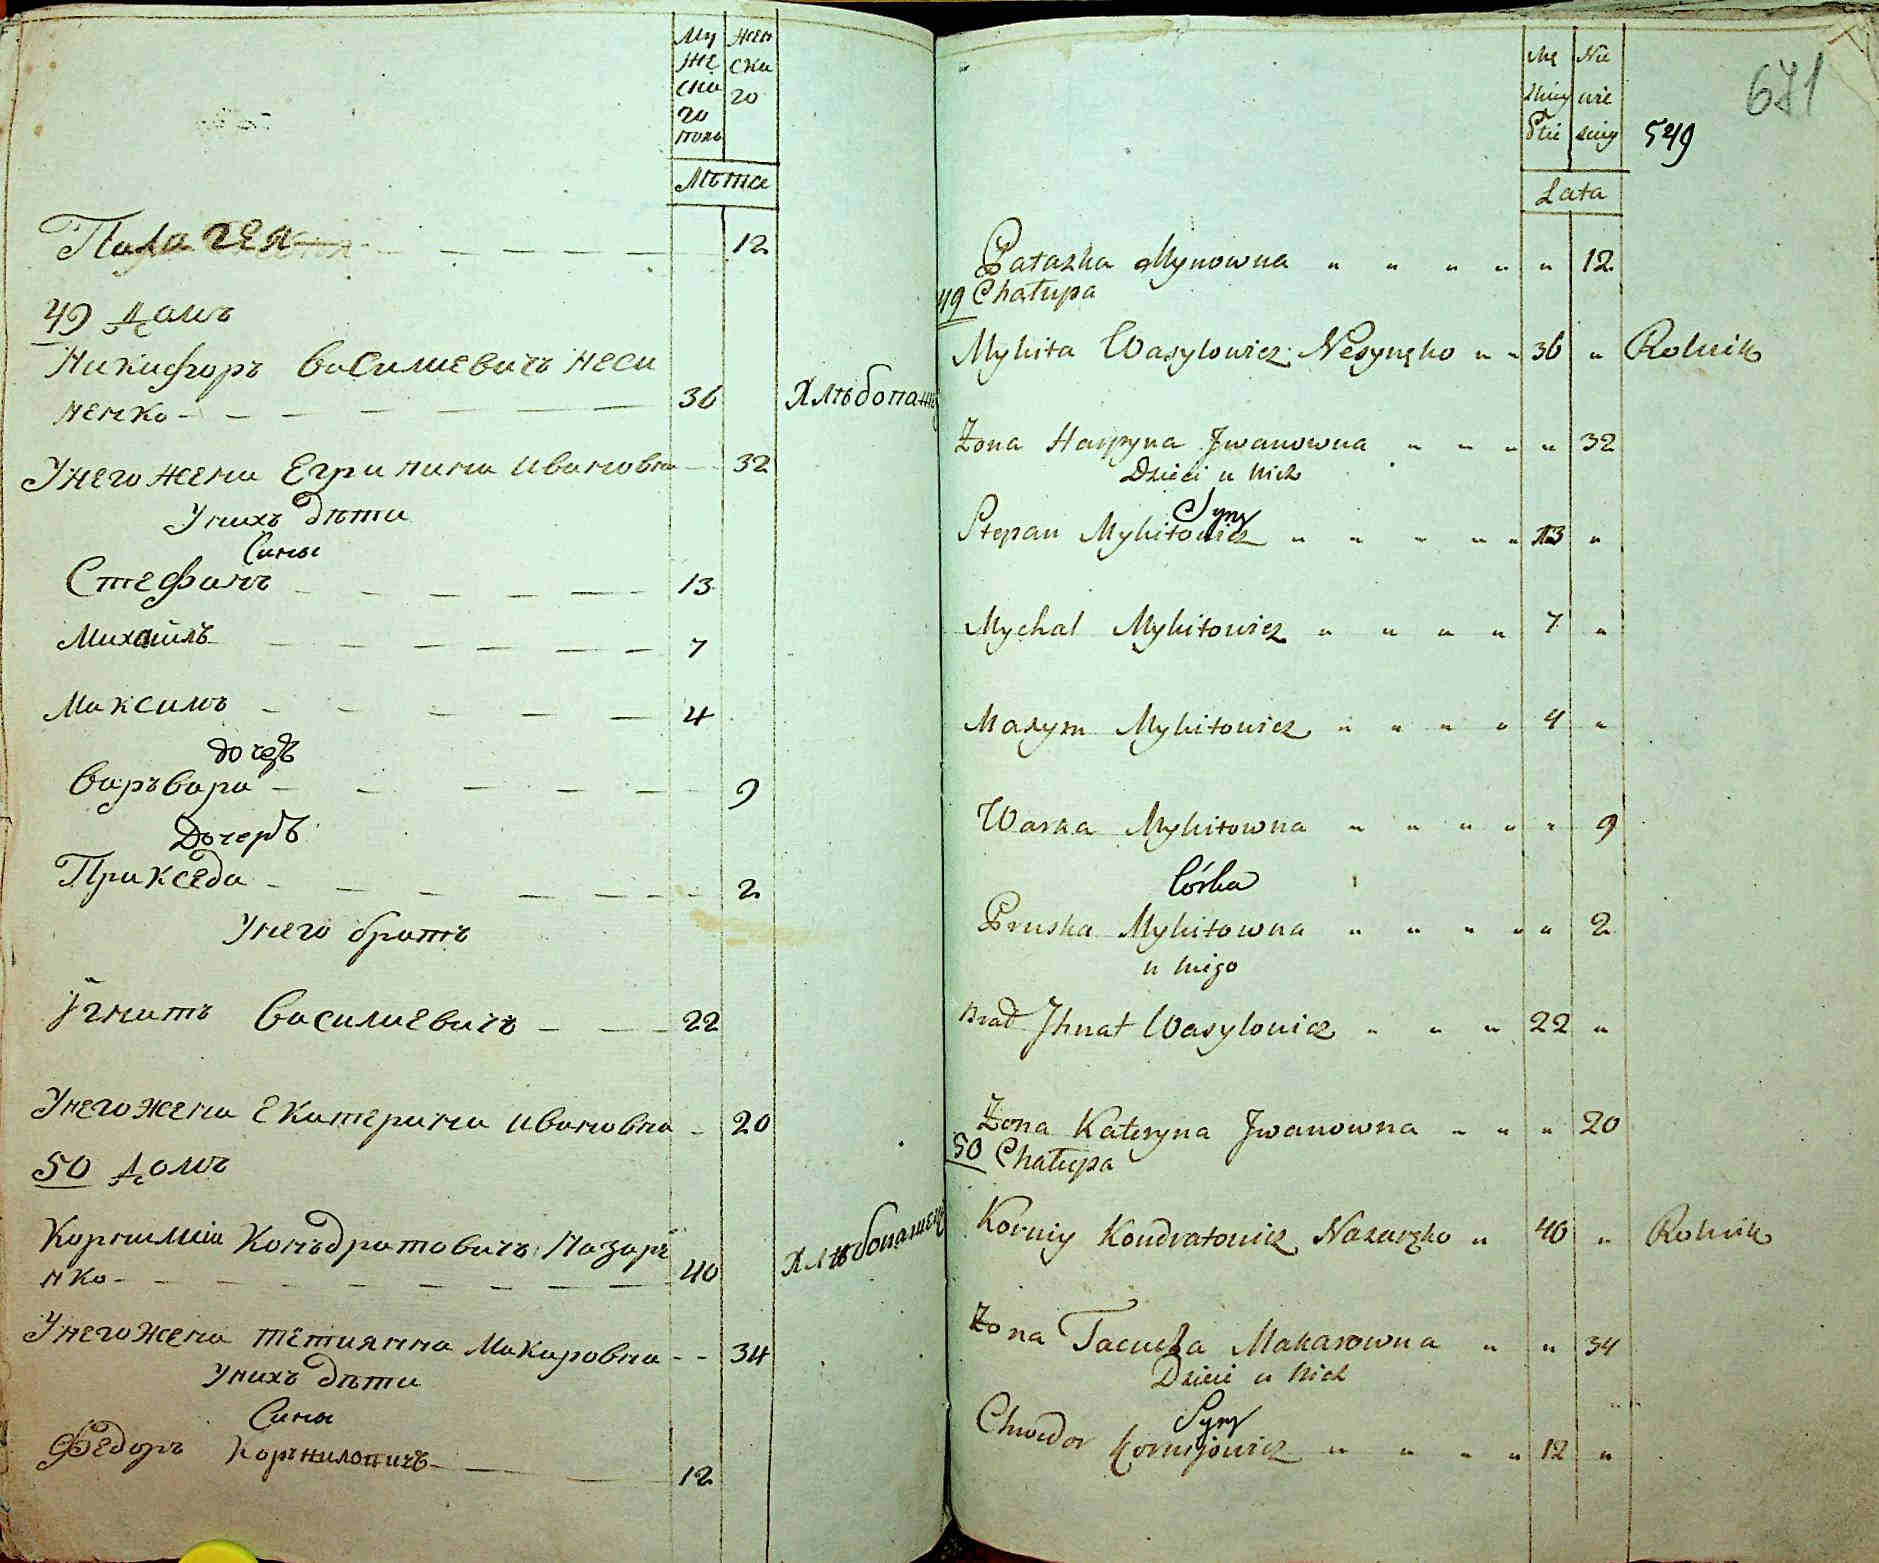 Му
же
ска
го
полу
жен
ска
го
Лѣта
Палагея 12
49 Домъ
Никифоръ Василиевичъ Неси
ненко 36 Хлѣбопаш
Унего жена Егрипина Ивановна 32
Унихъ дѣти
Сины
Стефанъ 13
Михаилъ 7
Максимъ 4
дочерѣ
Варъвара 9
Дочерѣ
Прикседа 2
Унего братъ
Игнатъ Василиевичъ 22
Унего жена Екатерина Ивановна 20
50 Домъ
Корнилий Конъдратовичъ Назаре
нко 40 Хлѣбопашец
Унего жена Тетиянна Макаровна 34
Унихъ дѣти
Сины
Федоръ Корниловичъ 12
671
Mę
zkiey
Płci
Nie
wie
sciey
549
Lata
Patazka Mynowna " " " " " 12
49 Chałupa
Mykita Wasylowicz Nesynęko " " 36 " Rolnik
Żona Harpyna Jwanowna " " " " 32
Dzieci u nich
Syny
Stepan Mykitowicz " " " " " 13 "
Mychal Mykitowicz " " " " 7 "
Maxym Mykitowicz " " " " 4 "
Warka Mykitowna " " " " " 9
Córka
Pruska Mykitowna " " " " " 2
u niego
Brat Jhnat Wasylowicz " " " 22 "
Żona Kateryna Jwanowna " " " 20
50 Chałupa
Korniy Kondratowicz Nazaręko " 40 " Rolnik
Żona Taciula Makarowna " " 34
Dzieci u nich
Syny
Chwedor Kornijowicz " " " " 12 "